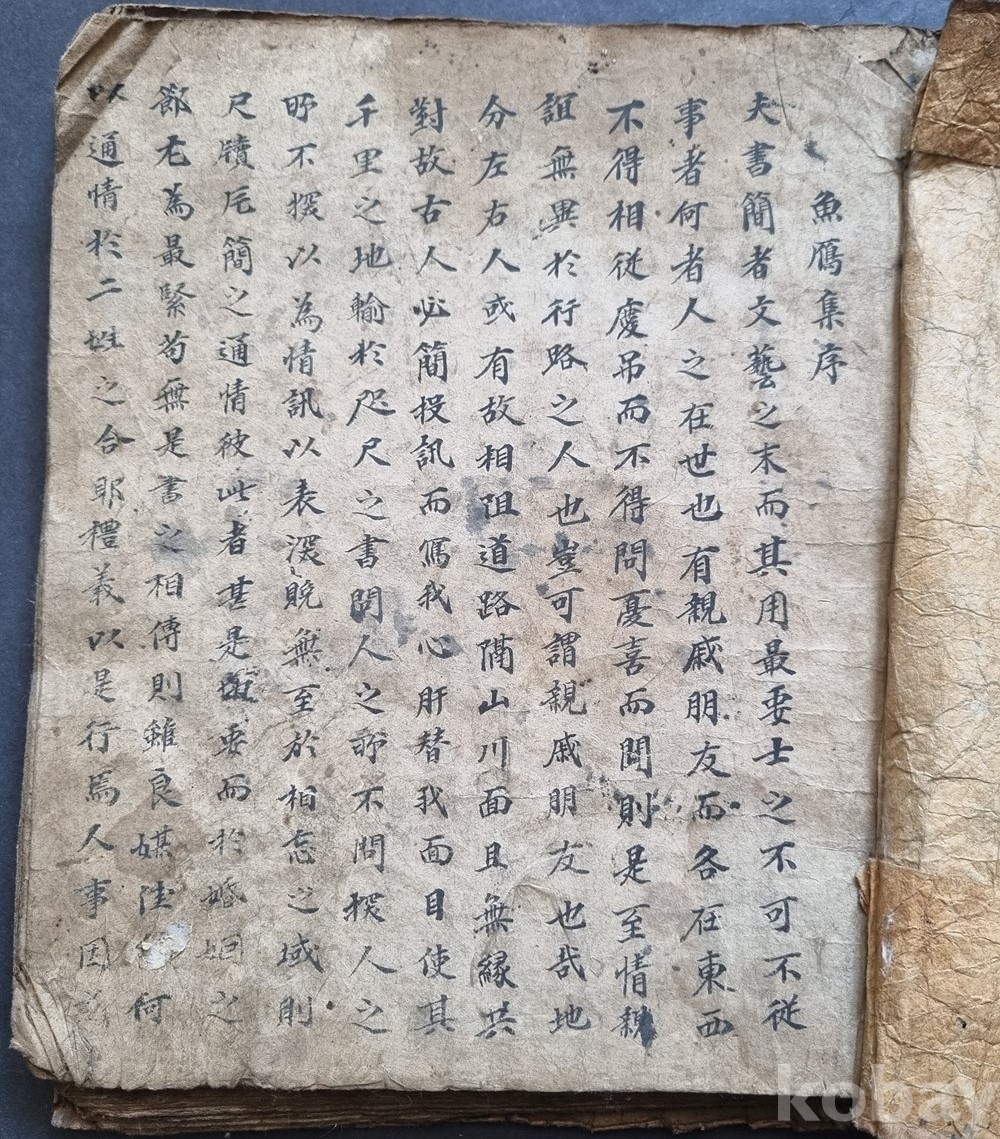 魚鴈集序
夫書簡者文藝之末而其用最要士之不可不從
事者何者人之在世也有親戚朋友而各在東西
不得相從慶吊而不得問憂喜而聞則是至情親
誼無異於行路之人也豈可謂親戚朋友也哉地
分左右人或有故相阻道路隔山川面且無緣共
對故古人必簡投訊而寫我心肝替我面目使其
千里之地輸於咫尺之書問人之所不問探人之
所不探以為情訊以表深晩無至於相忘之域則
尺牘片簡之通情彼此者甚是要而於婚姻之
節尤為最緊苟無是書之相傳則雖良媒佳何
以通情於二姓之合耶禮義以是行焉人事因
kobay